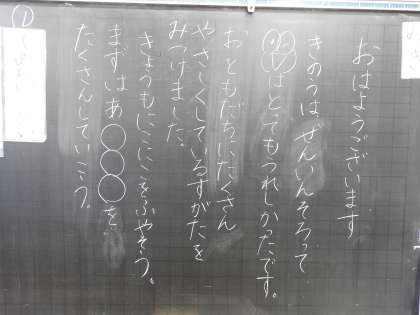 おはようございます
きのうは、ぜんいんそろって
はとてもうれしかったです。
おともだちにたくさん
やさしくしているすがたを
みつけました。
きょうもにこにこをふやそう。
まずはあ○○○を
たくさんしていこう。